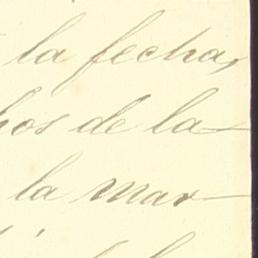 la fecha,
hos de la-
la mar-